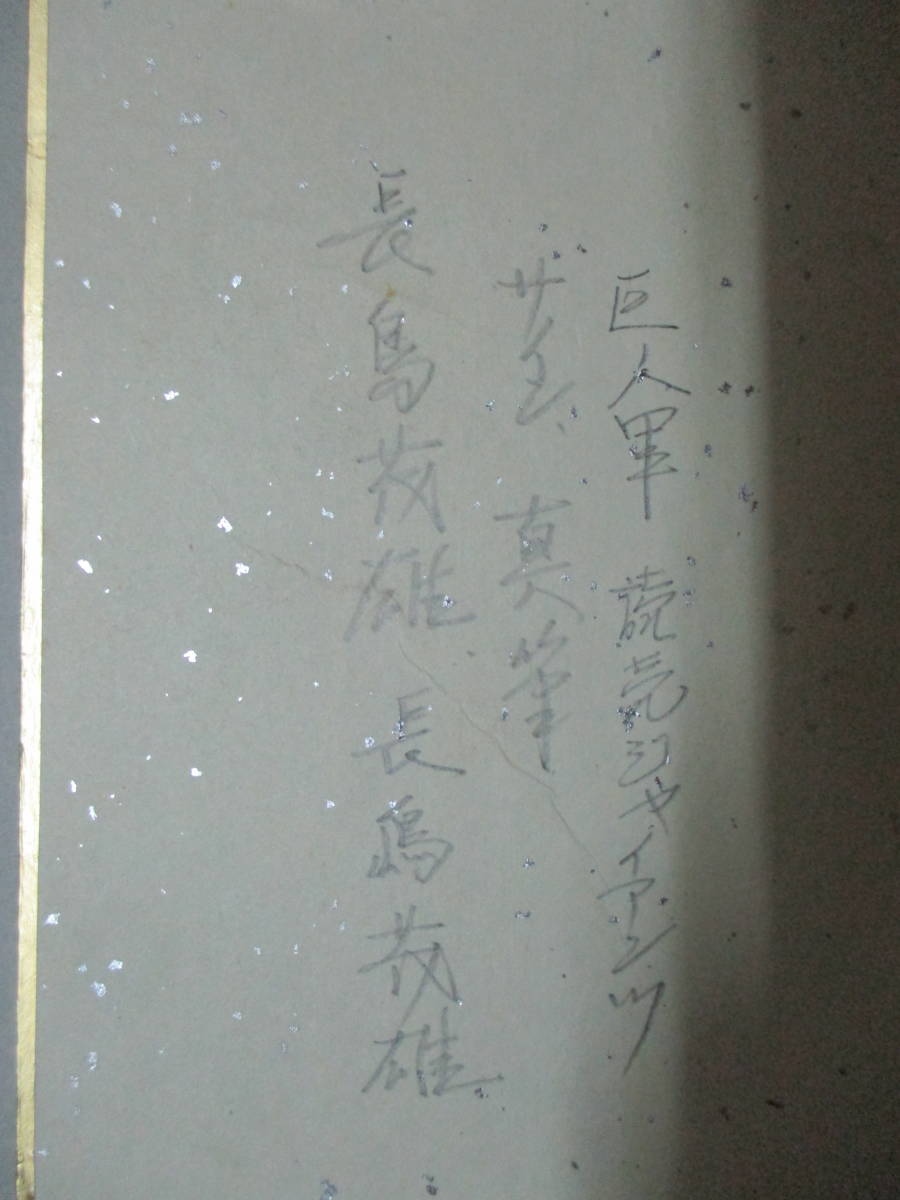 巨人軍 読売ジャイアンツ
サイン、真筆
長島茂雄 長嶋茂雄